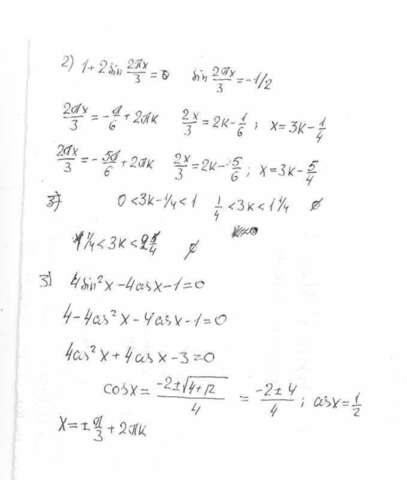 2) 1+2sin 2πx/3 = 0 sin 2πx/3 = -1/2
2πx/3 = -π/6 + 2πk 2x/3 = 2k - 1/6 ; x = 3k - 1/4
2πx/3 = -5π/6 + 2πk 2x/3 = 2k - 5/6 ; x = 3k - 5/4
0 < 3k - 1/4 < 1 1/4 < 3k < 1 1/4 ∅
1 1/4 < 3k < 2 1/4 ∅
3) 4sin²x - 4cosx - 1 = 0
4 - 4cos²x - 4cosx - 1 = 0
4cos²x + 4cosx - 3 = 0
cosx = (-2±√(4+12))/4 = (-2±4)/4 ; cosx = 1/2
x = ± π/3 + 2πk